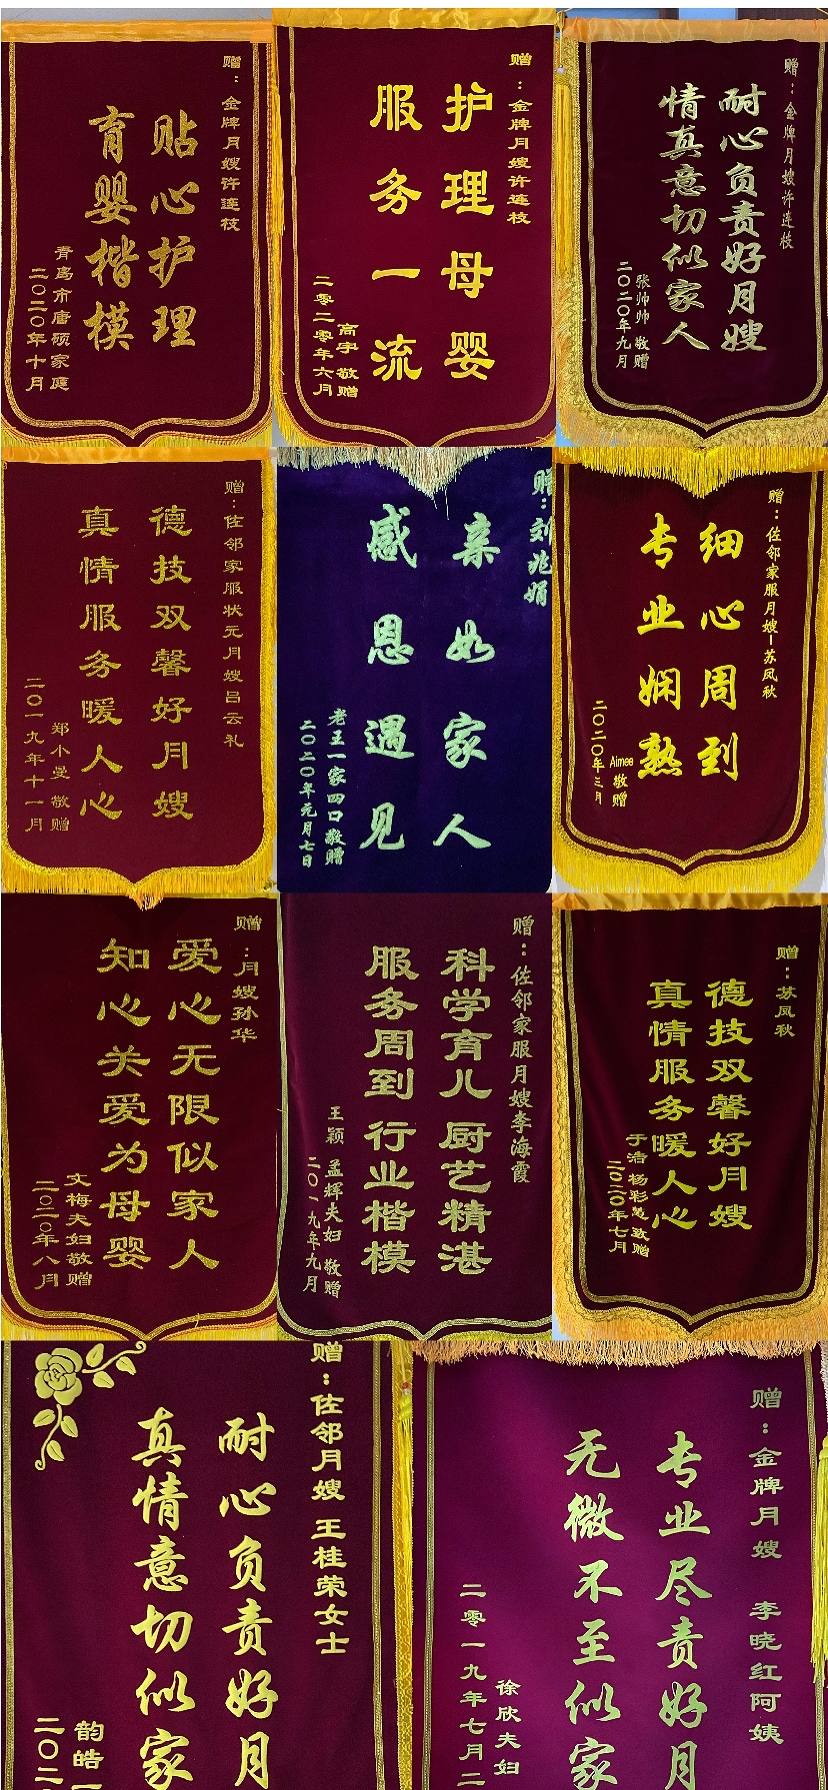 赠：金牌月嫂许连枝
贴心护理
育婴楷模
青岛市唐硕家庭
二〇二〇年十月
赠：金牌月嫂许连枝
护理母婴
服务一流
高宇 敬赠
二零二零年六月
赠：金牌月嫂许连枝
耐心负责好月嫂
情真意切似家人
张帅帅 敬赠
二〇二〇年九月
赠：佐邻家服状元月嫂吕云礼
德技双馨好月嫂
真情服务暖人心
郑小曼 敬赠
二〇一九年十一月
赠：刘兆娟
亲如家人
感恩遇见
老王一家四口敬赠
二〇二〇年元月七日
赠：佐邻家服月嫂-苏凤秋
细心周到
专业娴熟
Aimee 敬赠
二〇二〇年三月
赠：月嫂孙华
爱心无限似家人
知心关爱为母婴
文梅夫妇敬赠
二〇二〇年八月
赠：佐邻家服月嫂李海霞
科学育儿 厨艺精湛
服务周到 行业楷模
王颖 孟辉夫妇 敬赠
二〇一九年九月
赠：苏凤秋
德技双馨好月嫂
真情服务暖人心
于浩 杨彩慧 敬赠
二〇二〇年七月
赠：佐邻月嫂 王桂荣女士
耐心负责好月
真情意切似家
韵皓一
二〇二
赠：金牌月嫂 李晓红阿姨
专业尽责好月
无微不至似家
徐欣夫妇
二零一九年七月二